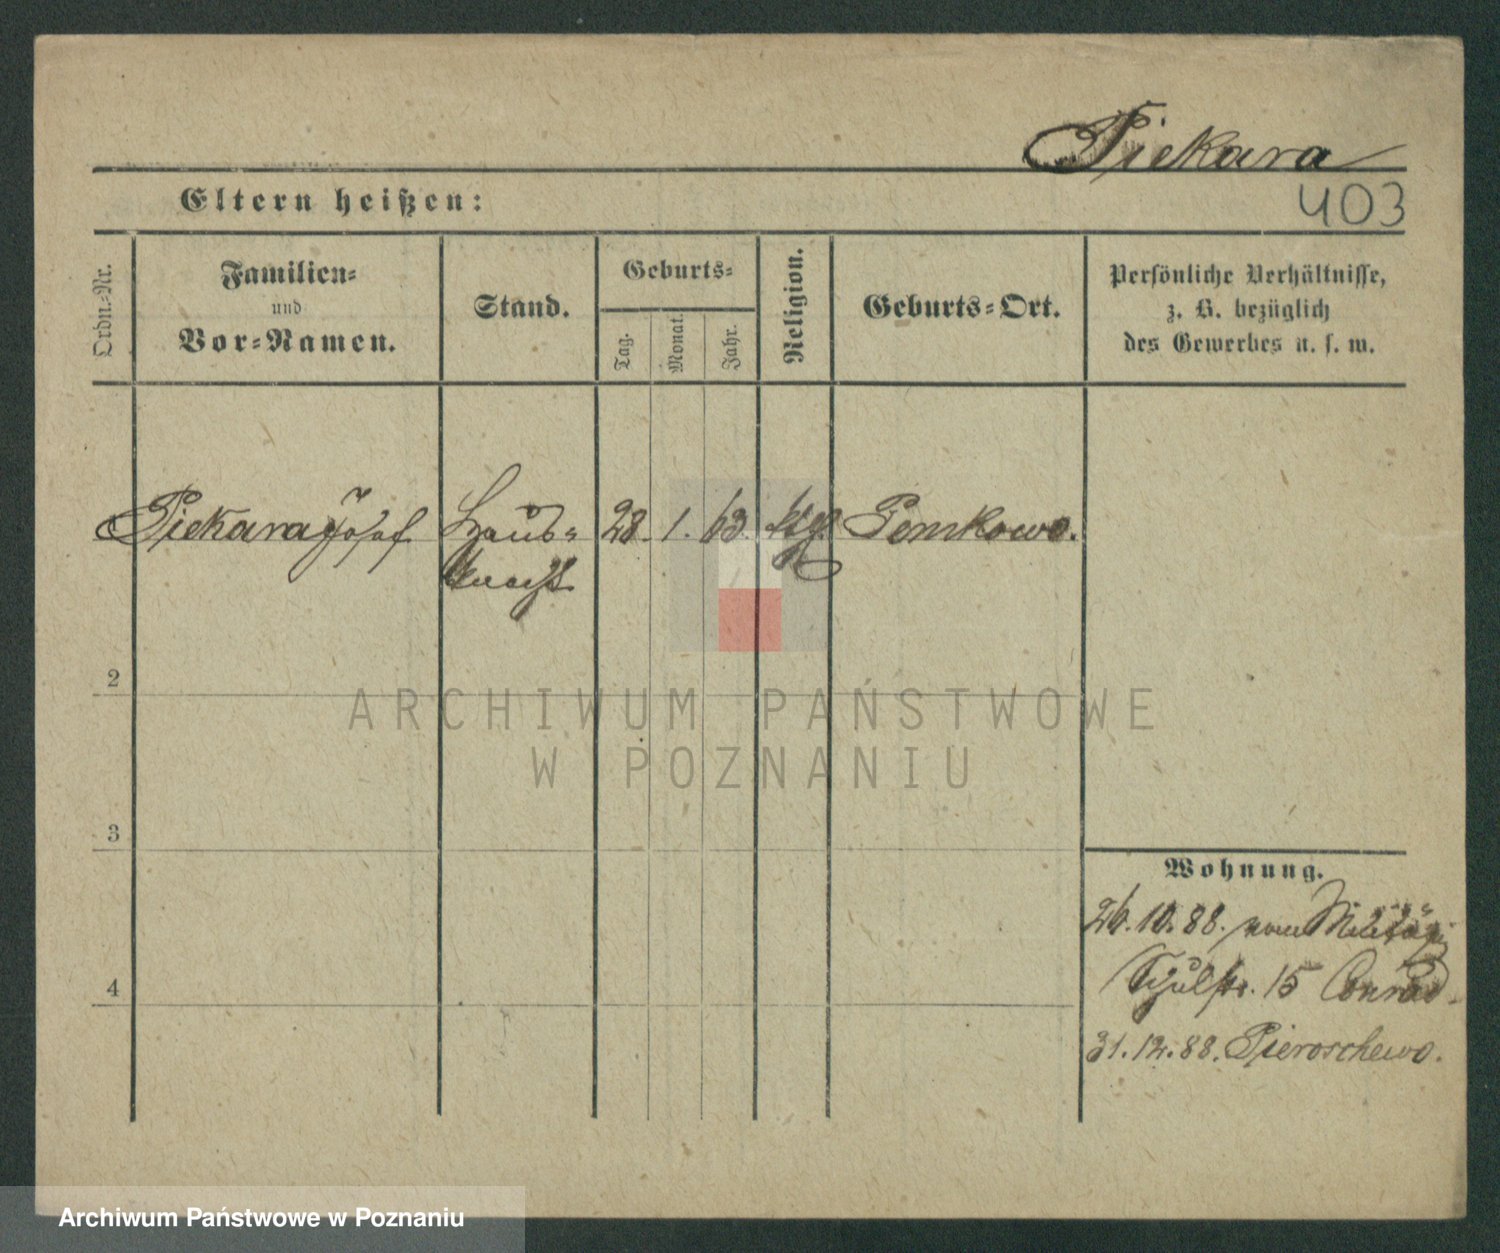 Piekara
403
Eltern heißen:
Ordn.-Nr.
Familien-
und
Vor-Namen.
Stand.
Geburts-
Tag.
Monat.
Jahr.
Religion.
Geburts-Ort.
Persönliche Verhältnisse,
z. B. bezüglich
des Gewerbes u. s. w.
Piekara Josef Haus- 28. 1. 63. ktg. Pemkowo.
knecht
2
3
4
Wohnung.
26.10.88. vom Militär
Schulstr. 15 Conrad
31.12.88. Pieroschewo.
ARCHIWUM PAŃSTWOWE
W POZNANIU
Archiwum Państwowe w Poznaniu